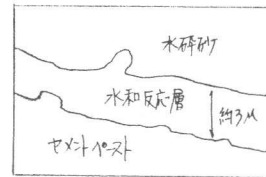 水砕砂
水和反応層
約3μ
セメントペースト